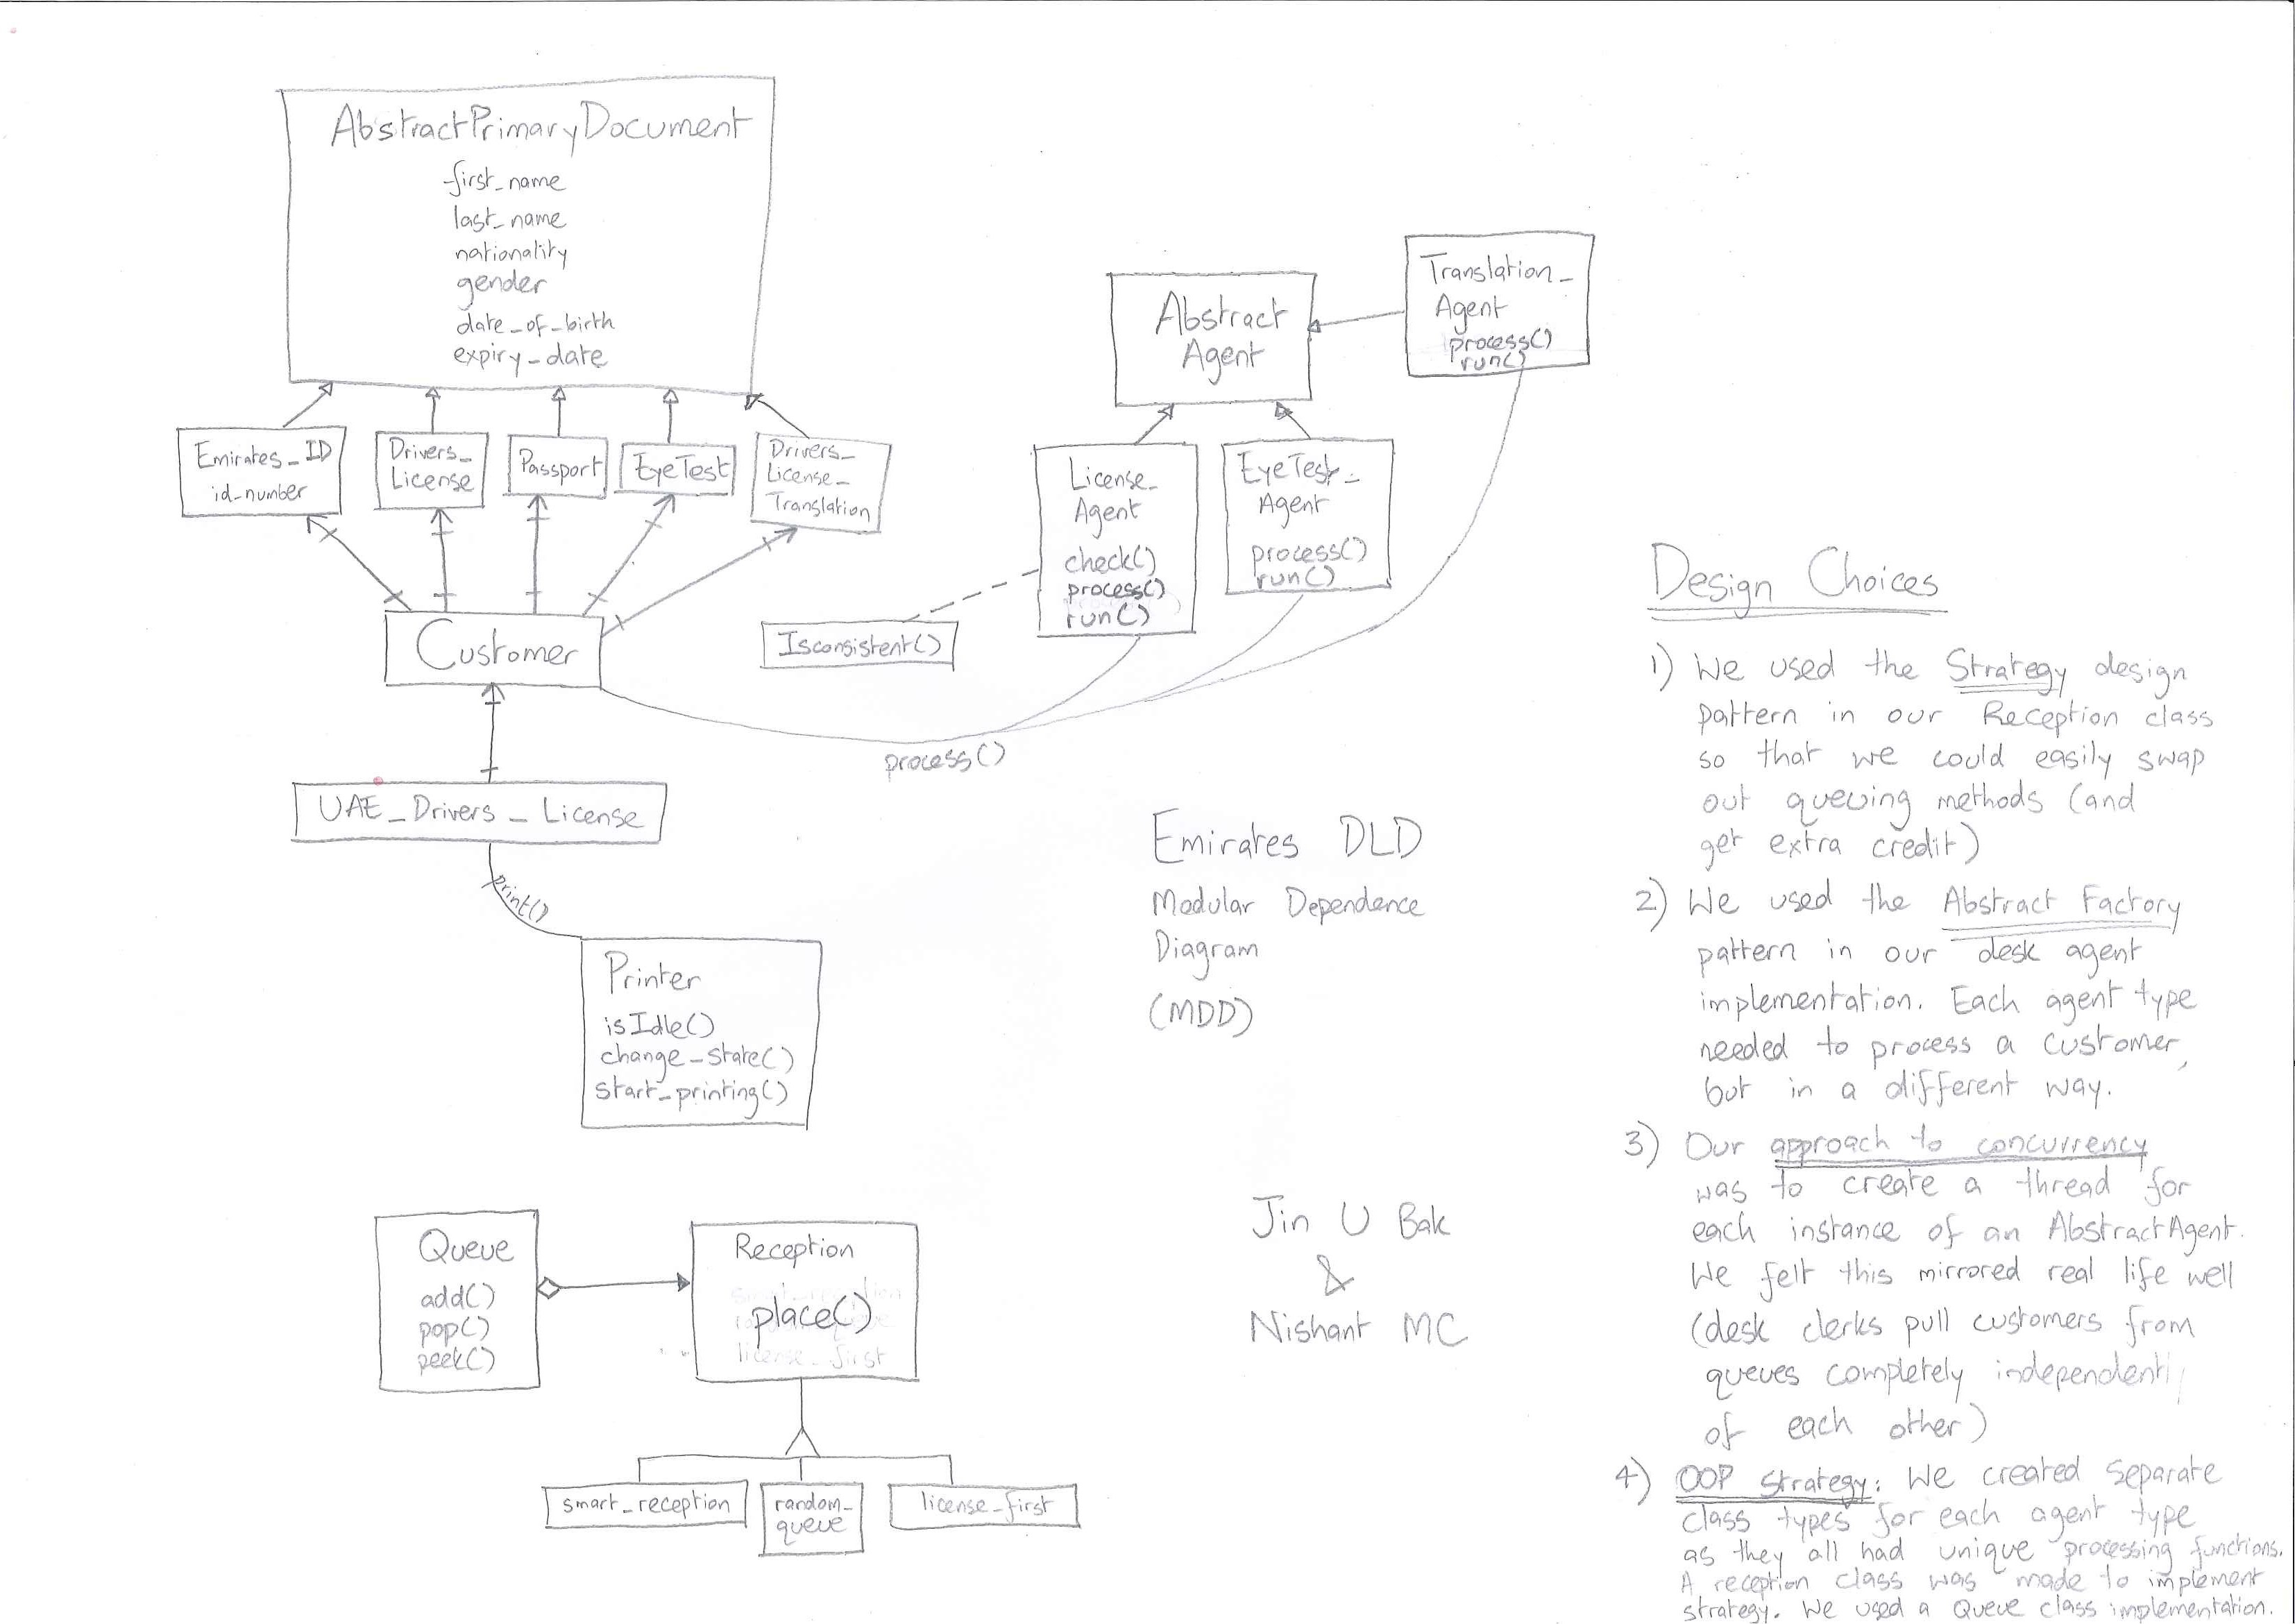 AbstractPrimaryDocument
first_name
last_name
nationality
gender
date_of_birth
expiry_date
Emirates_ID
id_number
Drivers_
License
Passport
EyeTest
Drivers_
License_
Translation
Customer
UAE_Drivers_License
print()
Printer
isIdle()
change_state()
start_printing()
Abstract
Agent
Translation_
Agent
process()
run()
License_
Agent
check()
process()
run()
EyeTest_
Agent
process()
run()
Isconsistent()
process()
Emirates DLD
Modular Dependence
Diagram
(MDD)
Jin U Bak
&
Nishant MC
Queue
add()
pop()
peek()
Reception
place()
license_first
smart_reception
random_
queue
license_first
Design Choices
1) We used the Strategy design
pattern in our Reception class
so that we could easily swap
out queuing methods (and
get extra credit)
2) We used the Abstract Factory
pattern in our desk agent
implementation. Each agent type
needed to process a customer,
but in a different way.
3) Our approach to concurrency
was to create a thread for
each instance of an AbstractAgent.
We felt this mirrored real life well
(desk clerks pull customers from
queues completely independently
of each other)
4) OOP Strategy: We created separate
class types for each agent type
as they all had unique processing functions.
A reception class was made to implement
strategy. We used a Queue class implementation.